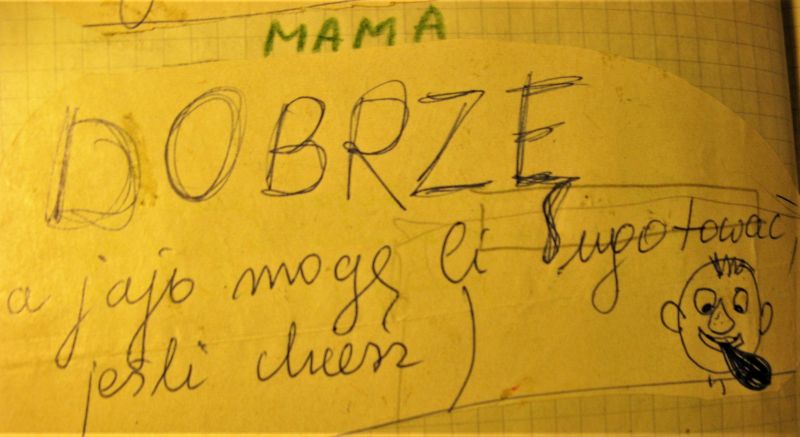 MAMA
DOBRZE
a jajo mogę Ci ugotować
jeśli chcesz )